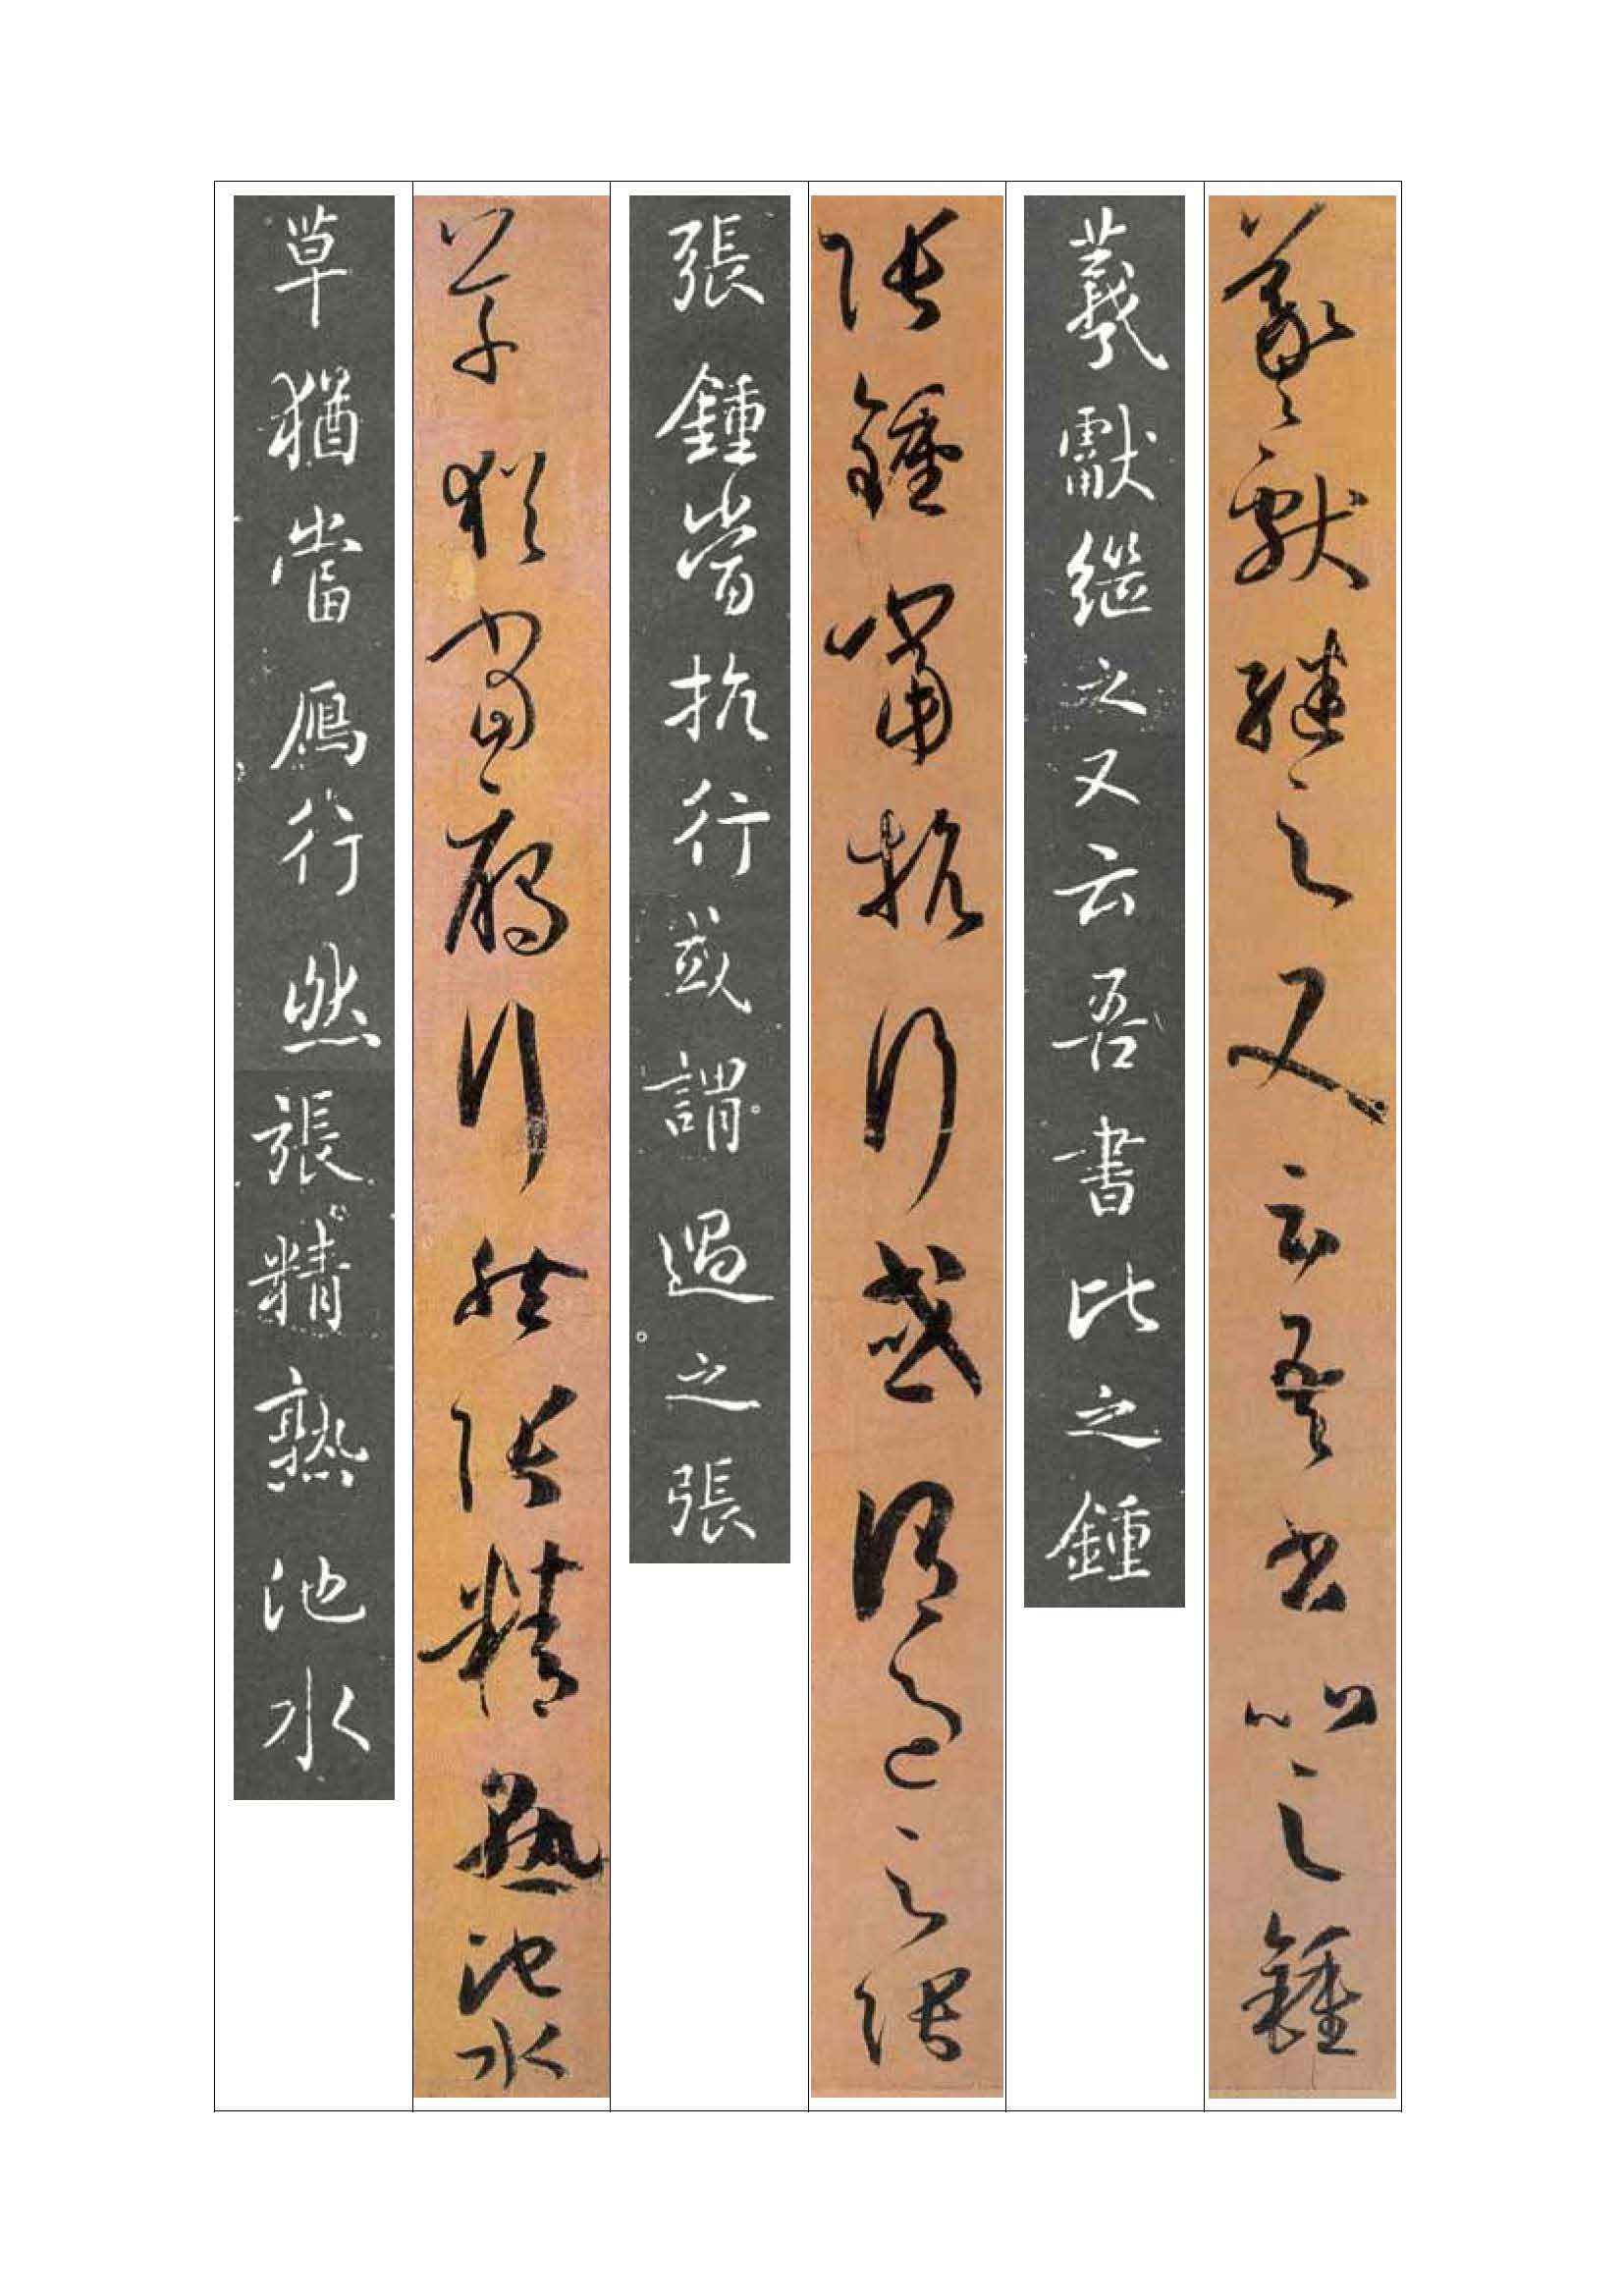 羲獻繼之又云吾書比之鍾
羲獻継之又云吾書比之鍾
張鍾當抗行或謂過之張
張鍾當抗行或謂過之張
草猶當鴈行然張精熟池水
草猶當鴈行然張精熟池水